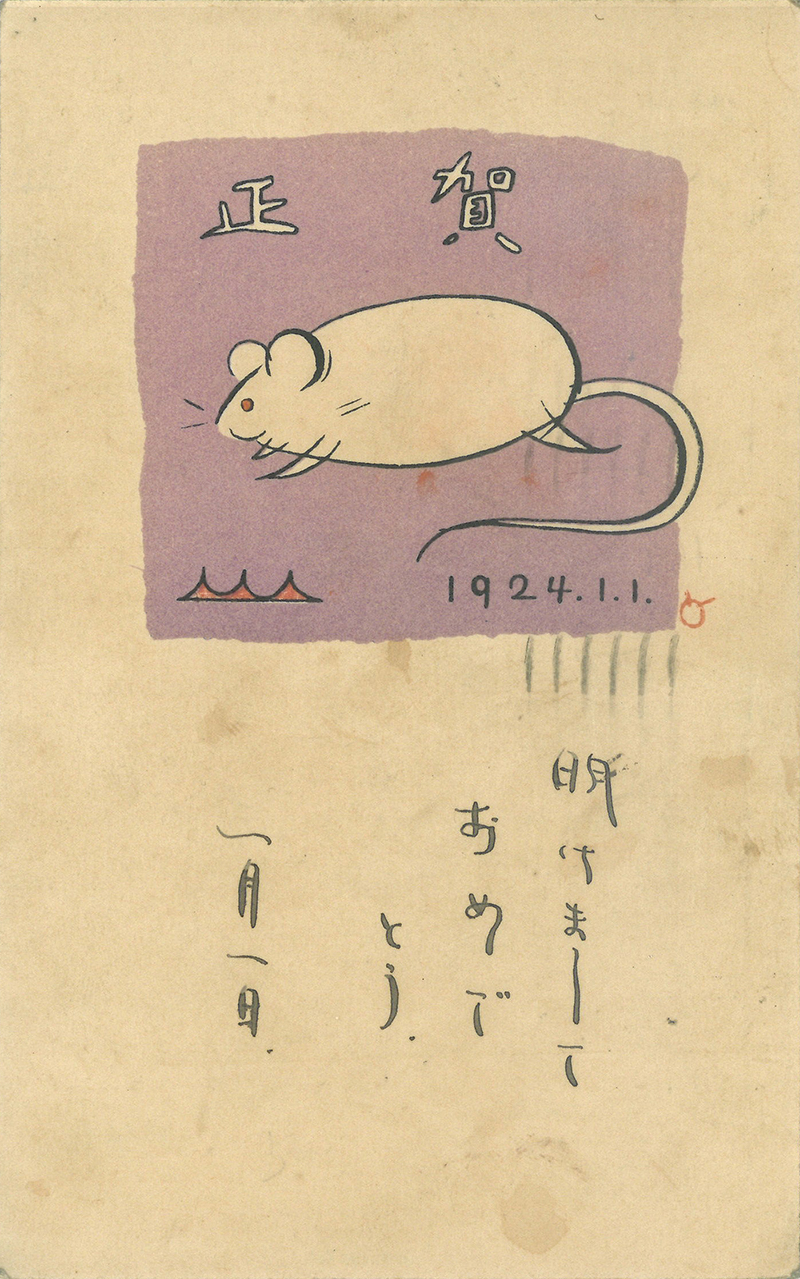 賀正
1924.1.1.
明けまして
おめで
とう.
一月一日.